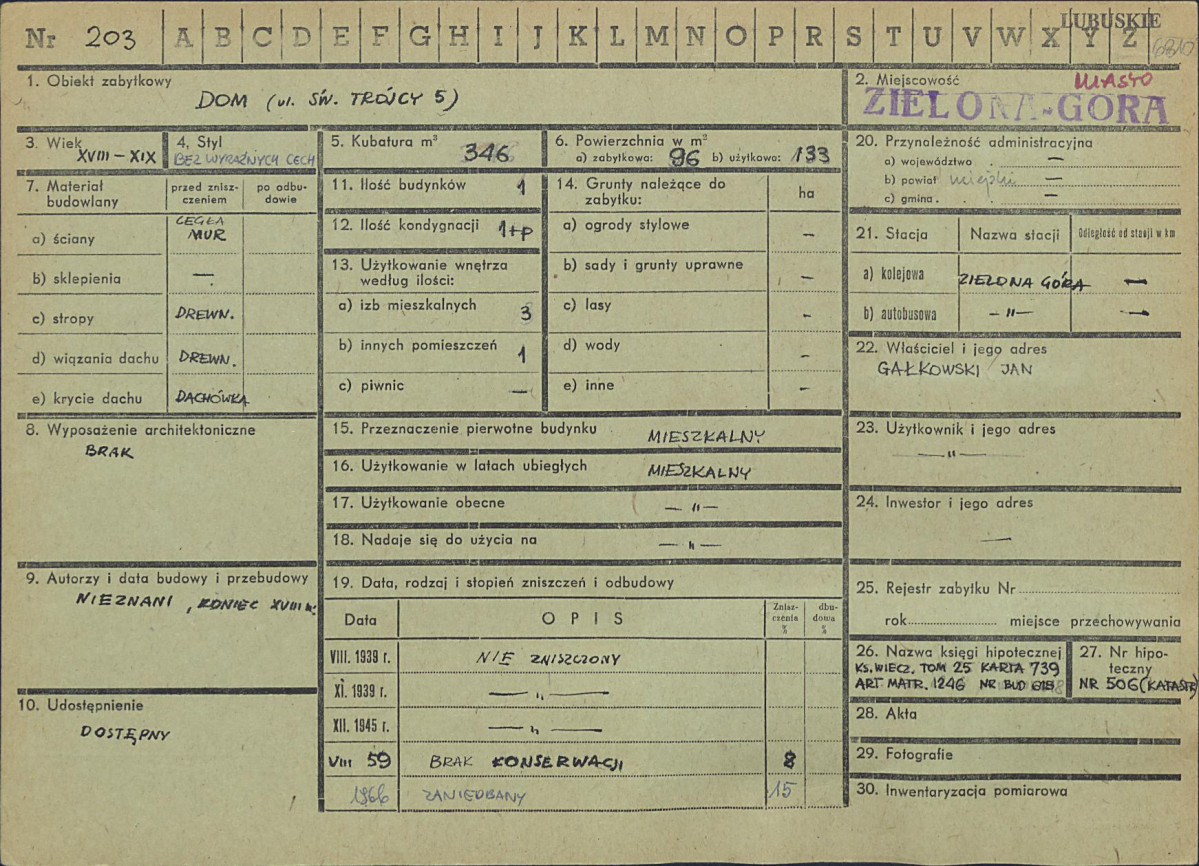 Nr 203 A B C D E F G H I J K L M N O P R S T U V W X Y Z
LUBUSKIE
1. Obiekt zabytkowy
DOM (ul. ŚW. TRÓJCY 5)
2. Miejscowość
MIASTO
ZIELONA-GÓRA
3. Wiek
XVIII – XIX
4. Styl
BEZ WYRAŹNYCH CECH
5. Kubatura m³
346
6. Powierzchnia w m²
a) zabytkowa: 96 b) użytkowo: 133
7. Materiał budowlany
przed zniszczeniem
po odbudowie
a) ściany CEGŁA
MUR
b) sklepienia —
c) stropy DREWN.
d) wiązania dachu DREWN.
e) krycie dachu DACHÓWKA
8. Wyposażenie architektoniczne
BRAK
9. Autorzy i data budowy i przebudowy
NIEZNANI, KONIEC XVIII w.
10. Udostępnienie
DOSTĘPNY
11. Ilość budynków 1
12. Ilość kondygnacji 1+p
13. Użytkowanie wnętrza
według ilości:
a) izb mieszkalnych 3
b) innych pomieszczeń 1
c) piwnic —
14. Grunty należące do
zabytku:
ha
a) ogrody stylowe –
b) sady i grunty uprawne –
c) lasy –
d) wody –
e) inne –
15. Przeznaczenie pierwotne budynku MIESZKALNY
16. Użytkowanie w latach ubiegłych MIESZKALNY
17. Użytkowanie obecne — „ —
18. Nadaje się do użycia na — „ —
19. Data, rodzaj i stopień zniszczeń i odbudowy
Data
O P I S
Zniszczenia %
dbudowa %
VIII. 1939 r. NIE ZNISZCZONY
XI. 1939 r. — „ —
XII. 1945 r. — „ —
VIII 59 BRAK KONSERWACJI 8
1966 ZANIEDBANY 15
20. Przynoleżność administracyjna
a) województwo . —
b) powiat miejski —
c) gmina . —
21. Stacja
Nazwa stacji
Odległość od stacji w km
a) kolejowa ZIELONA GÓRA —
b) autobusowa — „ — —
22. Właściciel i jego adres
GAŁKOWSKI JAN
23. Użytkownik i jego adres
— „ —
24. Inwestor i jego adres
—
25. Rejestr zabytku Nr
rok miejsce przechowywania
26. Nazwa księgi hipotecznej
KS. WIECZ. TOM 25 KARTA 739
ART MATR. 1246 NR BUD
27. Nr hipoteczny
NR 506 (KATASTR)
28. Akta
29. Fotografie
30. Inwentaryzacja pomiarowa